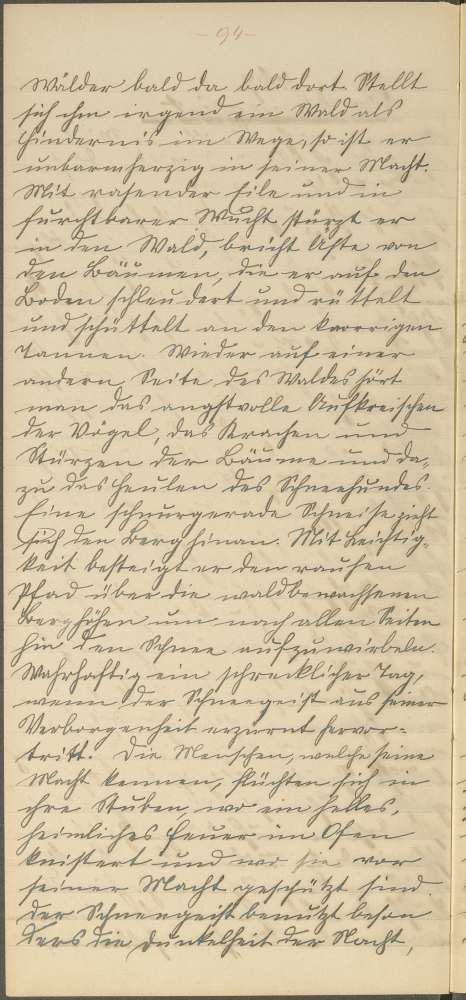 - 94 -
Wälder bald da bald dort. Stellt
sich ihm irgend ein Wald als
Hindernis im Wege, so ist er
unbarmherzig in seiner Macht.
Mit rasender Eile und in
furchtbarer Wucht stürzt er
in den Wald, bricht Äste von
den Bäumen, die er auf den
Boden schleudert und rüttelt
und schüttelt an den knorrigen
Tannen. Wieder auf einer
andern Seite des Waldes hört
man das angstvolle Aufkreischen
der Vögel, das Krachen und
Stürzen der Bäume und da-
zu das Heulen des Schneehundes.
Eine schnurgerade Schneise zieht
sich den Berg hinan. Mit Leichtig-
keit besteigt er den rauhen
Pfad über die waldbewachsenen
Berghöhen um nach allen Seiten
hin den Schnee aufzuwirbeln.
Wahrhaftig ein schrecklicher Tag,
wenn der Schneegeist aus seiner
Verborgenheit erzürnt hervor-
tritt. Die Menschen, welche seine
Macht kennen, flüchten sich in
ihre Stuben, wo ein helles,
heimliches Feuer im Ofen
knistert und wo sie vor
seiner Macht geschützt sind.
Der Schneegeist benutzt beson
ders die Dunkelheit der Nacht,